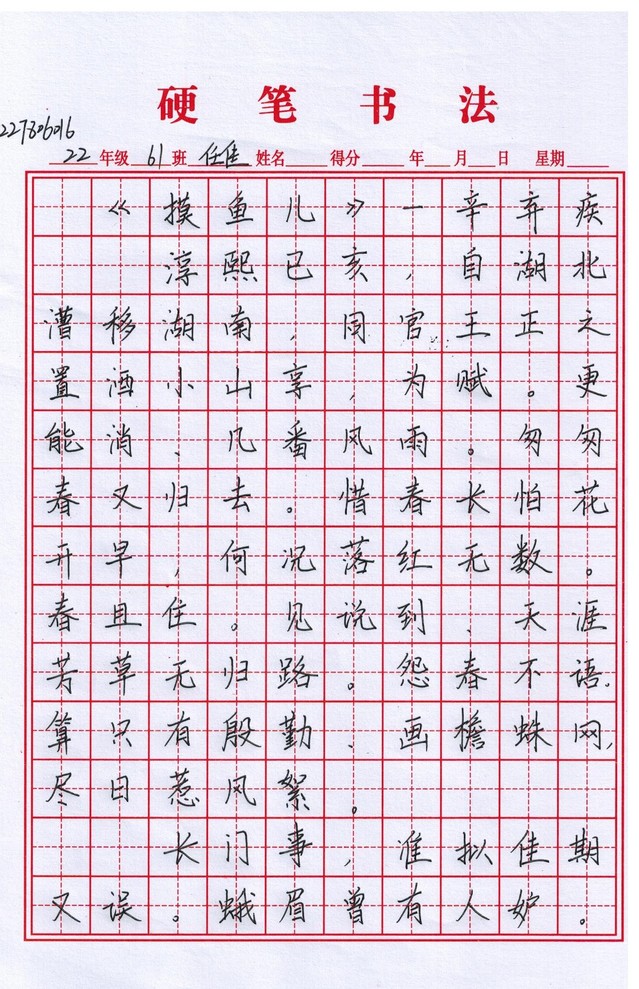 硬笔书法
227806016
22年级 61班 任佳 姓名 得分 年 月 日 星期
《摸鱼儿》一辛弃疾
淳熙已亥，自湖北
漕移湖南，同官王正之
置酒小山享，为赋。更
能消、几番风雨。匆匆
春又归去。惜春长怕花
开早，何况落红无数。
春且住。见说到、天涯
芳草无归路。怨春不语.
算只有殷勤、画檐蛛网,
尽日惹风絮。
长门事，准拟佳期
又误。蛾眉曾有人妒。